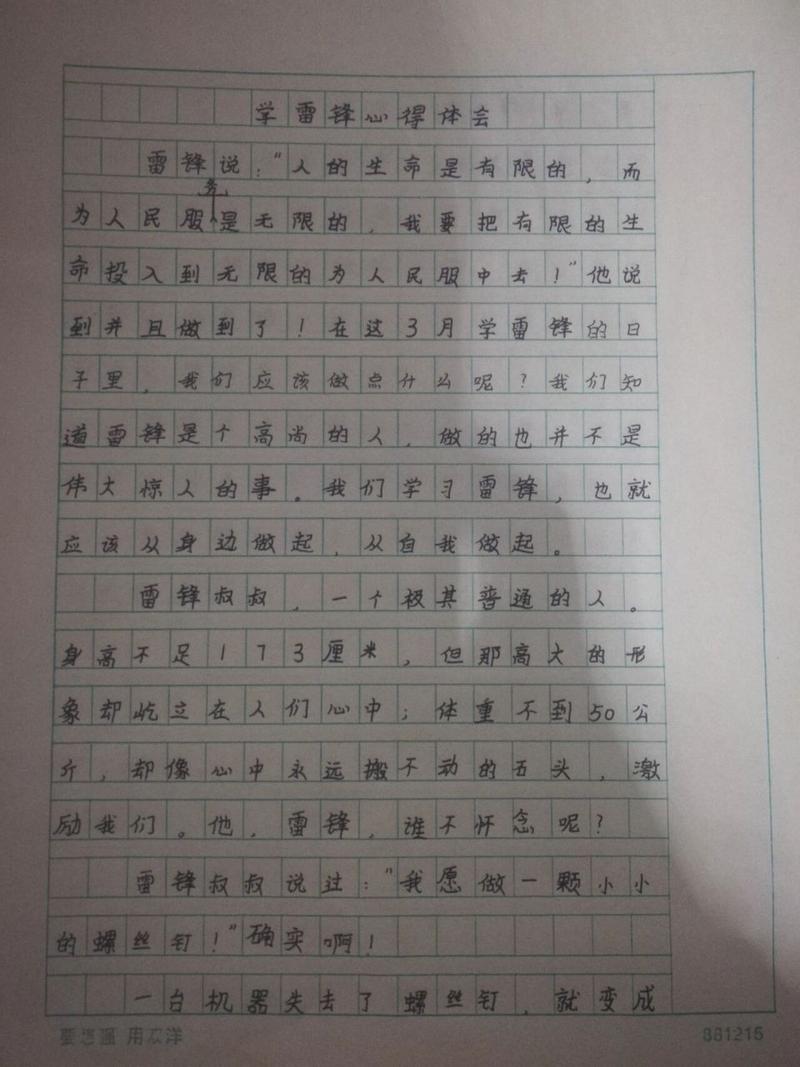 学雷锋心得体会
雷锋说:"人的生命是有限的,而
为人民服务是无限的,我要把有限的生
命投入到无限的为人民服中去!"他说
到并且做到了!在这3月学雷锋的日
子里,我们应该做点什么呢?我们知
道雷锋是个高尚的人,做的也并不是
伟大惊人的事。我们学习雷锋,也就
应该从身边做起,从自我做起。
雷锋叔叔,一个极其普通的人。
身高不足173厘米,但那高大的形
象却屹立在人们心中;体重不到50公
斤,却像心中永远搬不动的石头,激
励我们。他,雷锋,谁不怀念呢?
雷锋叔叔说过:"我愿做一颗小小
的螺丝钉!"确实啊!
一台机器失去了螺丝钉,就变成
881215